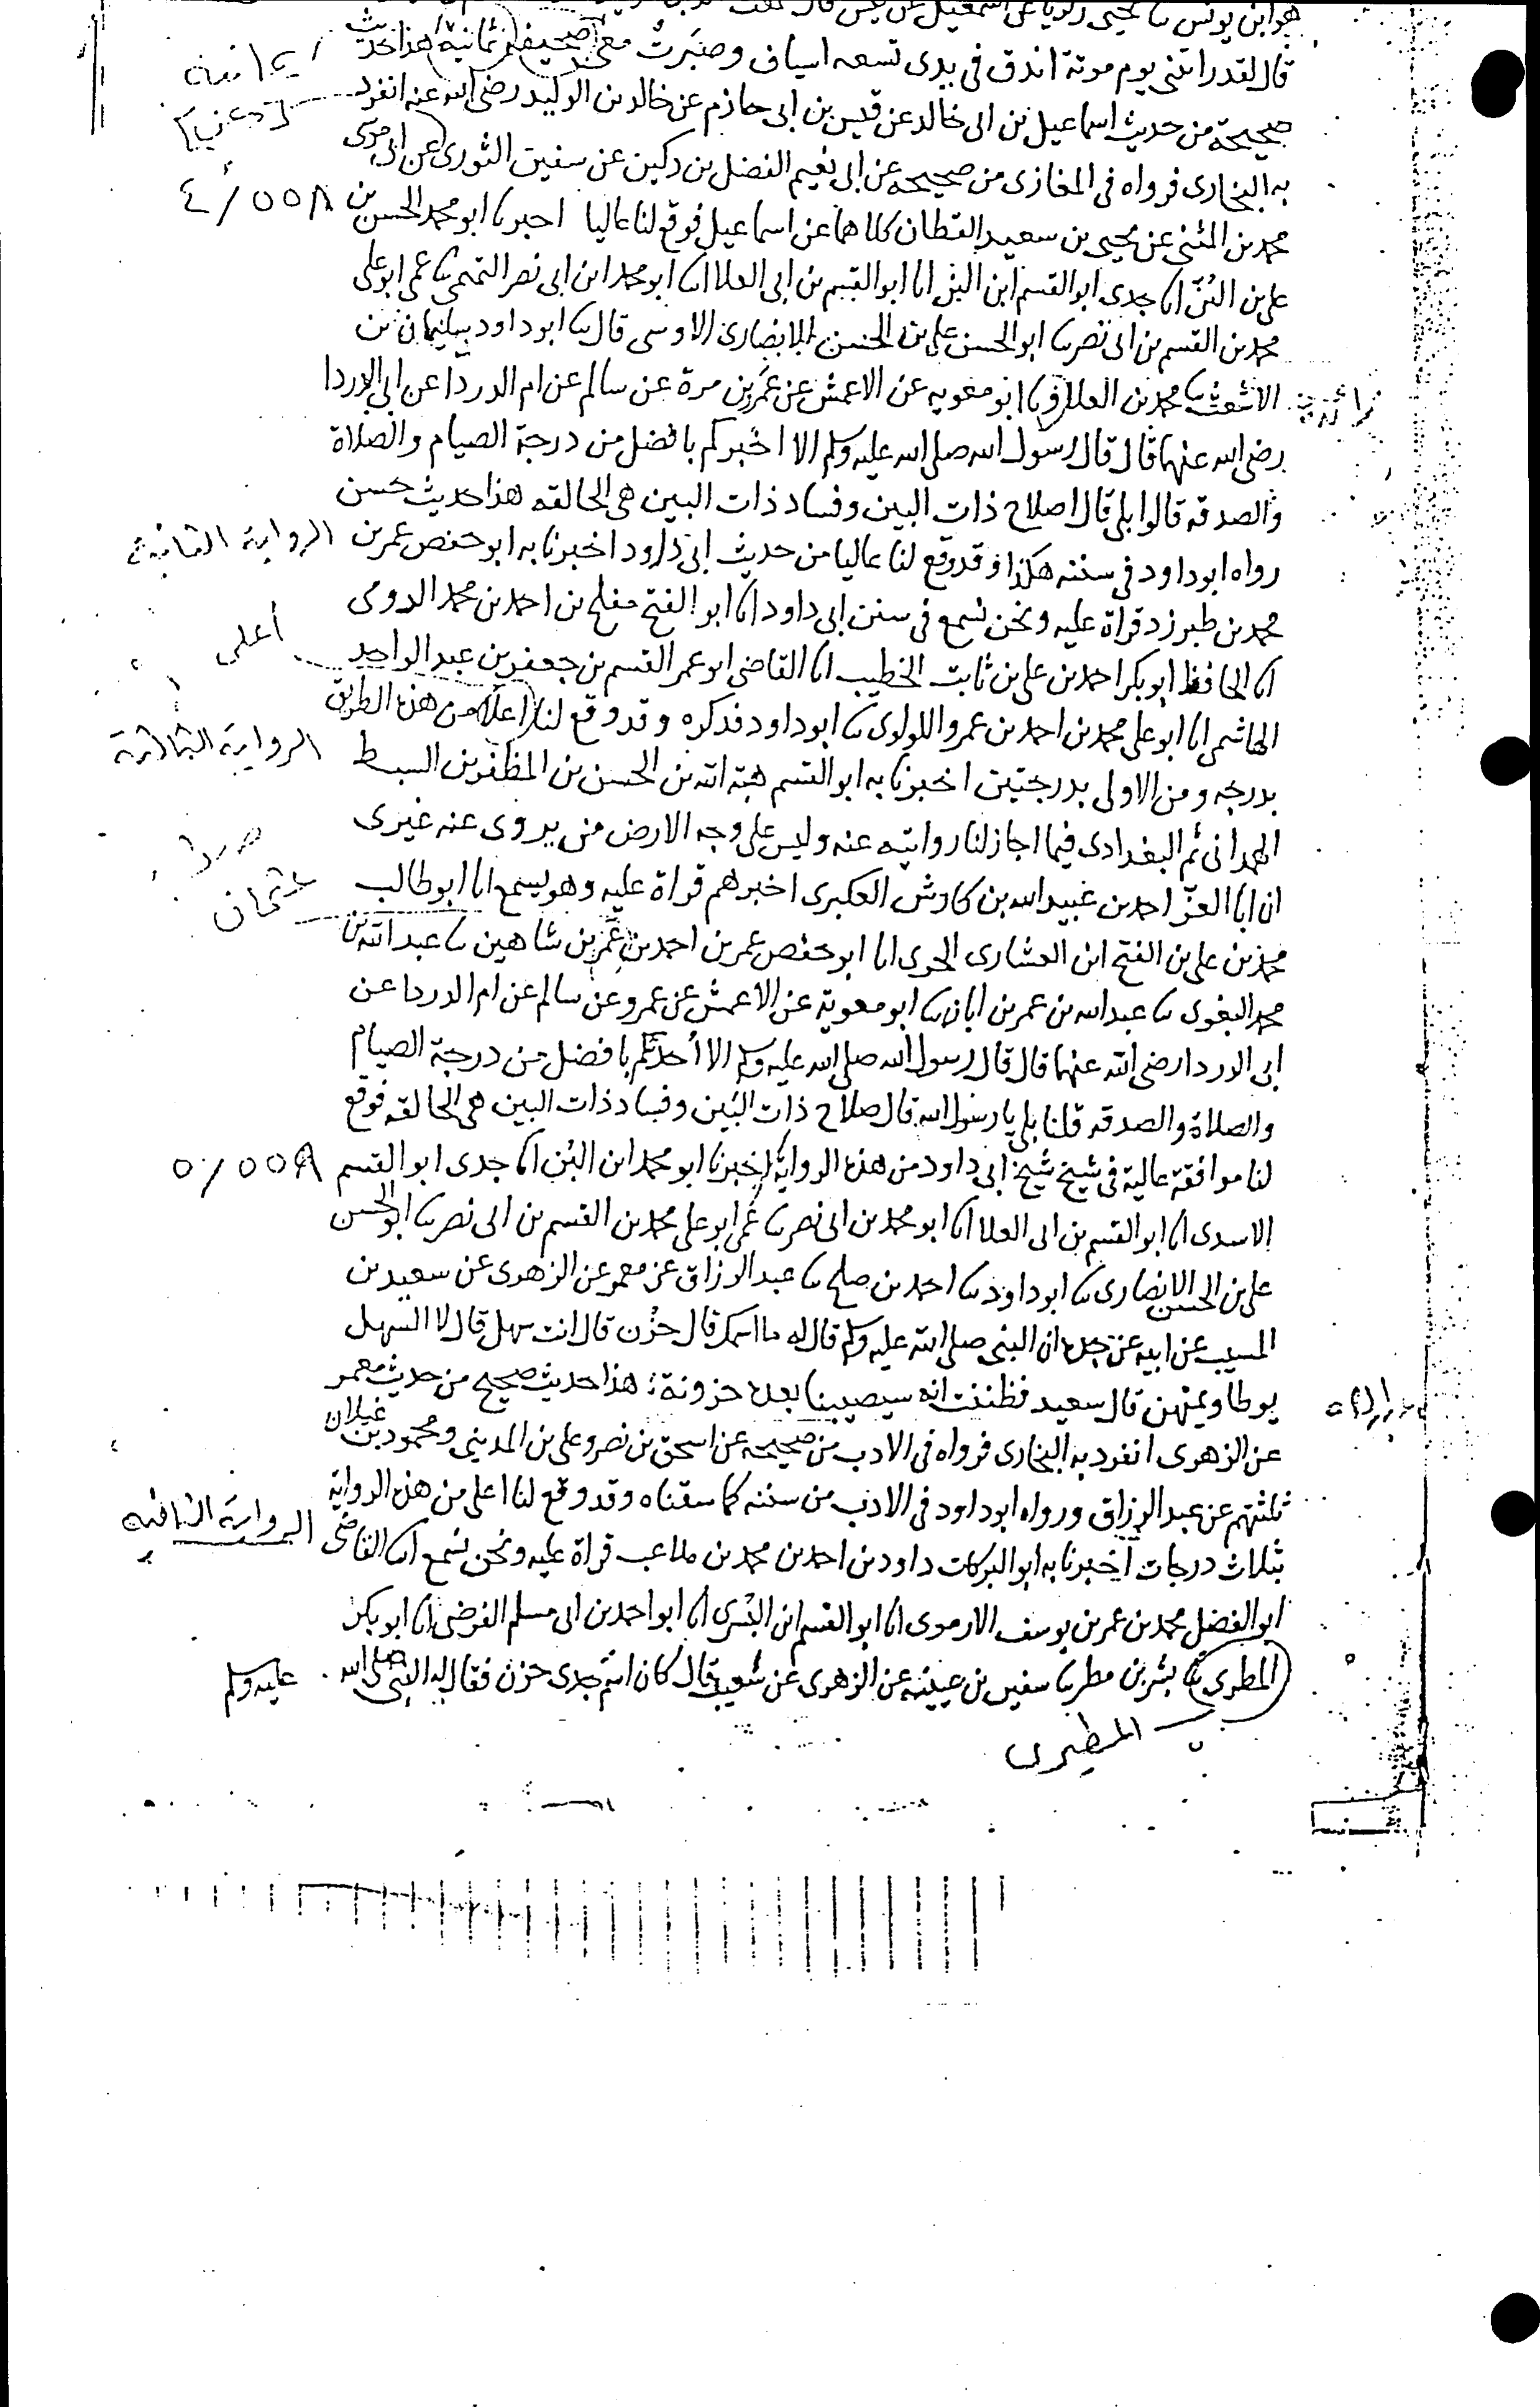 هو ابن يونس ثنا يحيى زكريا عن اسمعيل عن قيس قال
قال لقد رايتني يوم موتة اندق في يدي تسعه اسياف وصبرت معي صحيفة يمانية هذا حديث
صحيحة من حديث اسماعيل بن ابى خالد عن قيس بن ابى حازم عن خالد بن الوليد رضى الله عنه انفرد
به البخارى فرواه في المغازى من صحيحه عن ابى نعيم الفضل بن دكين عن سفين الثورى عن ابى موسى
محمد بن المثنى عن يحيى بن سعيد القطان كلاهما عن اسماعيل فوقع لنا عاليا اخبرنا ابو محمد الحسن بن
٤/٥٥٨
على بن البُنّ انا جدى ابو القسم ابن البن انا ابو القسم بن ابى العلا انا ابو محمد ابن ابى نصر التميمى ثنا عمى ابو على
محمد بن القسم بن ابى نصر ثنا ابو الحسن على بن الحسن الانصارى الاوسى قال ثنا ابو داود سليمان بن
الاشعث ثنا محمد بن العلا ثنا ابو معويه عن الاعمش عن عَمرو بن مرة عن سالم عن ام الدردا عن ابى الدردا
رضى الله عنهما قال قال رسول الله صلى الله عليه وسلم الا اخبركم بافضل من درجة الصيام والصلاة
والصدقه قالوا بلى قال اصلاح ذات البين وفساد ذات البين هي الحالقه هذا حديث حسن
رواه ابو داود في سننه هكذا وقد وقع لنا عاليا من حديث ابى داود اخبرنا به ابو حفص عمر بن
الرواية الثانية
محمد بن طبرزد قراة عليه ونحن نسمع في سنن ابى داود انا ابو الفتح مفلح بن احمد بن محمد الدومى
انا الحافظ ابو بكر احمد بن على بن ثابت الخطيب انا القاضى ابو عمر القسم بن جعفر بن عبد الواحد
أعلى
الهاشمى انا ابو على محمد بن احمد بن عمرو اللولوى ثنا ابو داود فذكره وقد وقع لنا اعلا من هذه الطريق
بدرجه ومن الاولى بدرجتين اخبرنا به ابو القسم هبة الله بن الحسن بن المظفر بن السبط
الرواية الثالثة
الهمدانى ثم البغدادى فيما اجاز لنا روايته عنه وليس على وجه الارض من يروى عنه غيرى
ان ابا العزّ احمد بن عبيد الله بن كادش العكبرى اخبرهم قراة عليه وهو يسمع انا ابو طالب
عثمان
محمد بن على بن الفتح ابن العشارى الحربى انا ابو حفص عمر بن احمد بن عمر بن شاهين ثنا عبد الله بن
محمد البغوى ثنا عبد الله بن عمر بن ابان ثنا ابو معوية عن الاعمش عن عمرو عن سالم عن ام الدردا عن
ابى الدردا رضى الله عنهما قال قال رسول الله صلى الله عليه وسلم الا أحدثكم بافضل من درجة الصيام
والصلاة والصدقه قلنا بلى يا رسول الله قال صلاح ذات البَين وفساد ذات البين هي الحالقه فوقع
لنا موافقة عالية في شيخ شيخ ابى داود من هذه الرواية اخبرنا ابو محمد ابن البُن انا جدى ابو القسم
٥/٥٥٨
الاسدى انا ابو القسم بن ابى العلا انا ابو محمد بن ابى نصر ثنا عمى ابو على محمد بن القسم بن ابى نصر ثنا ابو الحسن
على بن الحسن الانصارى ثنا ابو داود ثنا احمد بن صلح ثنا عبد الرزاق عن معمر عن الزهرى عن سعيد بن
المسيب عن ابيه عن جده ان النبى صلى الله عليه وسلم قال له ما اسمك قال حزْن قال انت سهل قال لا السهل
يوطا ويمتهن قال سعيد فظننت انه سيصيبنا بعده حزونة: هذا حديث صحيح من حديث معمر
عن الزهرى انفرد به البخارى فرواه في الادب من صحيحه عن اسحق بن نصر وعلى بن المدينى ومحمود بن غيلان
ثلثتهم عن عبد الرزاق ورواه ابو داود في الادب من سننه كما سقناه وقد وقع لنا اعلى من هذه الرواية
بثلاث درجات اخبرنا به ابو البركات داود بن احمد بن محمد بن ملاعب قراة عليه ونحن نسمع انا القاضى
الرواية الثانيه
ابو الفضل محمد بن عمر بن يوسف الارموى انا ابو القسم ابن البُسرى انا ابو احمد بن ابى مسلم الفرضى انا ابو بكر
المطرى ثنا بشر بن مطر ثنا سفين بن عيينه عن الزهرى عن سعيد قال كان اسم جدى حزن فقال له النبى صلى الله عليه وسلم
المطيرى